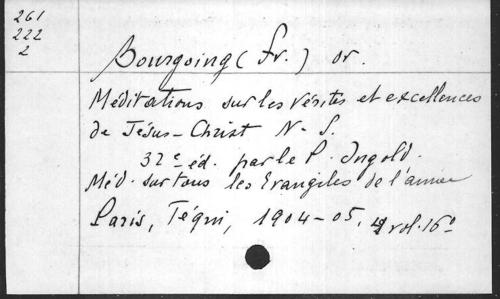 261
222
2
Bourgoing (Fr.) or.
Méditations sur les vérités et excellences
de Jésus-Christ N.-S.
32e éd. par le P. Ingold.
Méd. sur tous les Evangiles de l'année
Paris, Téqui, 1904-05, vol. 16º